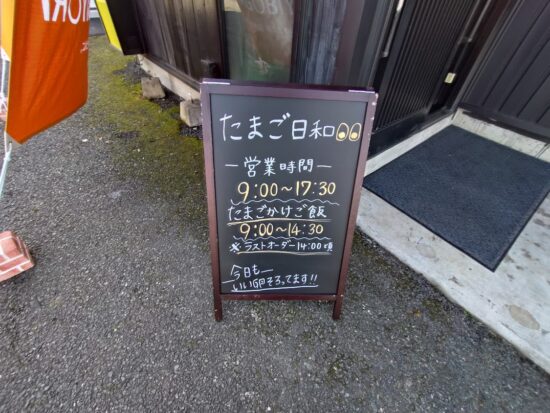 たまご日和
ー営業時間ー
9:00〜17:30
たまごかけご飯
9:00〜14:30
※ラストオーダー14:00頃
今日もー
いいG@そろってます!!